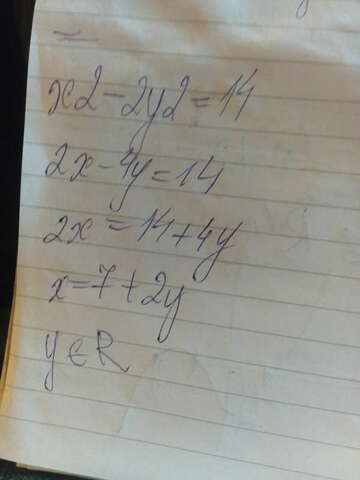 x2-2y2=14
2x-4y=14
2x=14+4y
x=7+2y
y∈R